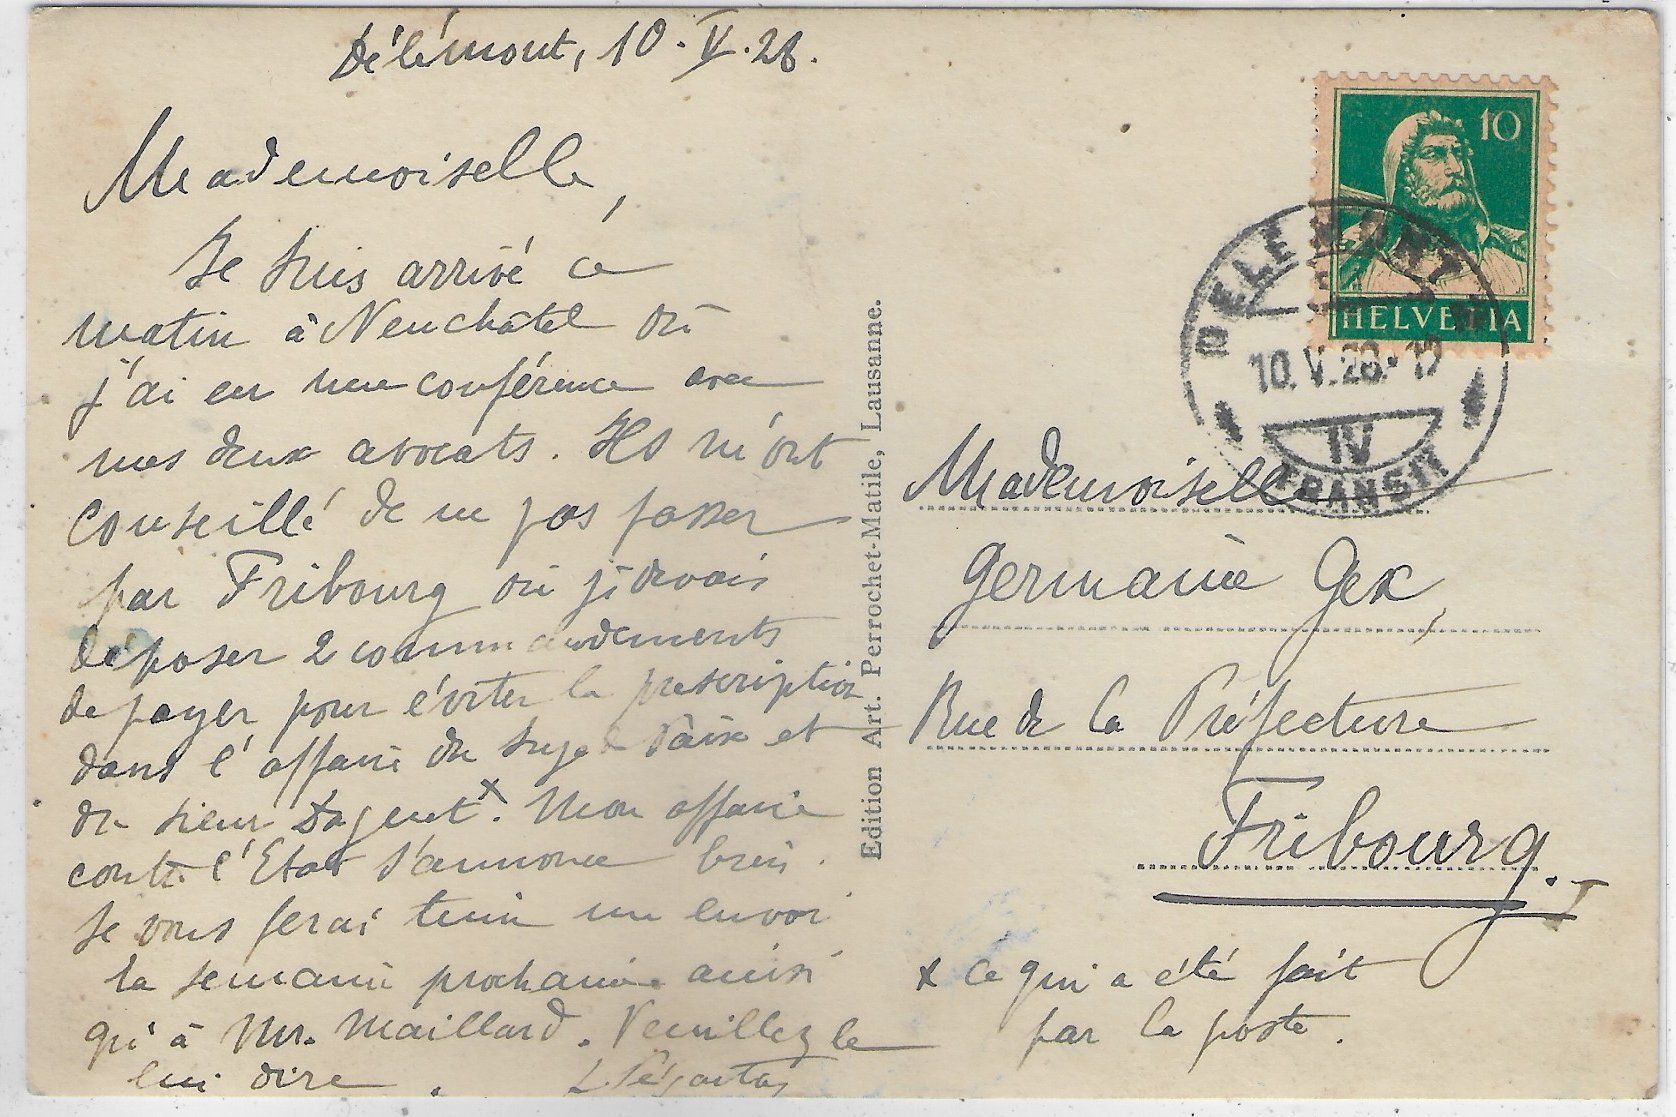 Délémont, 10.V.28.
Mademoiselle,
Je suis arrivé ce
matin à Neuchâtel où
j'ai eu une conférence avec
mes deux avocats. Ils m'ont
conseillé de ne pas passer
par Fribourg où je devais
déposer 2 commandements
de payer pour éviter la prescription
dans l'affaire du Juge de Paix et
du sieur x. Mon affaire
contre l'Etat s'annonce bien.
Je vous ferai tenir un envoi
la semaine prochaine ainsi
qu'à Mr. Maillard. Veuillez le
lui dire.
Edition Art. Perrochet-Matile, Lausanne.
10
HELVETIA
DELEMONT
10.V.28.
IV
TRANSIT
Mademoiselle
Germaine Gex,
Rue de la Préfecture
Fribourg.
x ce qui a été fait
par la poste.